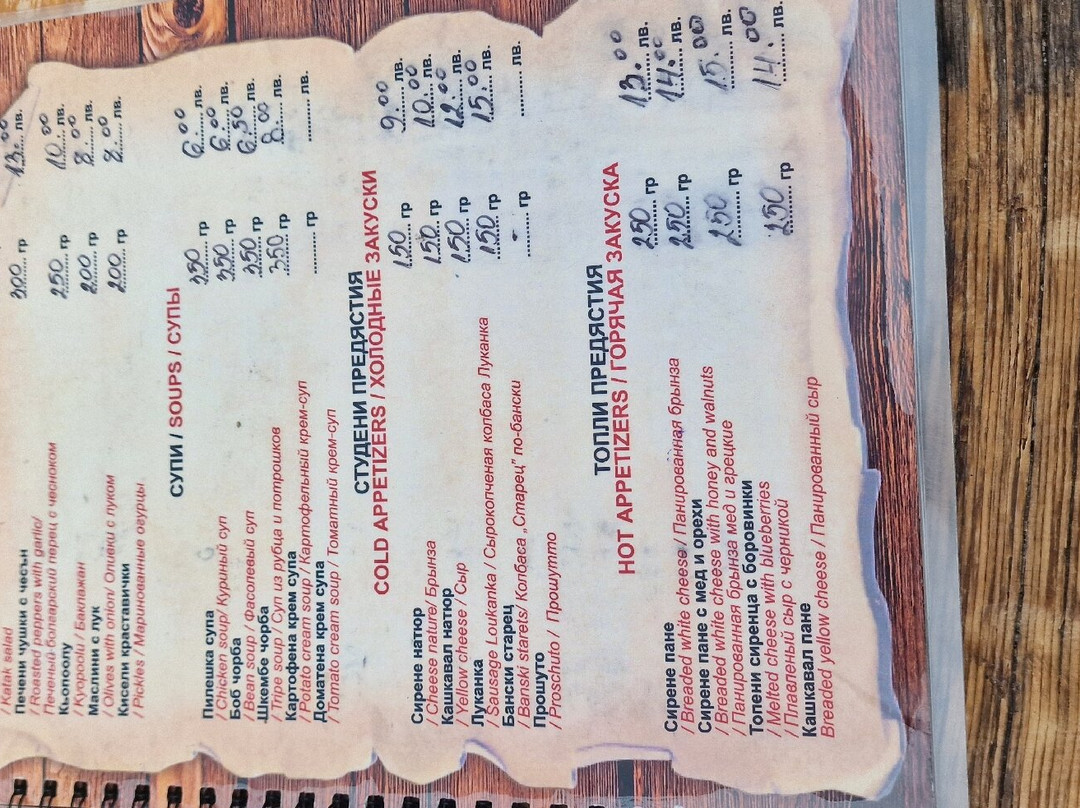 / Katak salad
Печени чушки с чесън 300 гр 13.00 лв.
/ Roasted peppers with garlic/
Печеный болгарский перец с чесноком
Кьопоолу 250 гр 10.00 лв.
/ Kyopolu / Баклажан
Маслини с лук 200 гр 8.00 лв.
/ Olives with onion/ Оливки с луком
Кисели краставички 200 гр 8.00 лв.
/ Pickles / Маринованные огурцы
СУПИ / SOUPS / СУПЫ
Пилешка супа 350 гр 6.00 лв.
/ Chicken soup/ Куриный суп
Боб чорба 350 гр 6.00 лв.
/ Bean soup / Фасолевый суп
Шкембе чорба 350 гр 6.50 лв.
/ Tripe soup / Суп из рубца и потрошков
Картофена крем супа 350 гр 8.00 лв.
/ Potato cream soup / Картофельный крем-суп
Доматена крем супа ......... гр ......... лв.
/ Tomato cream soup / Томатный крем-суп
СТУДЕНИ ПРЕДЯСТИЯ
COLD APPETIZERS / ХОЛОДНЫЕ ЗАКУСКИ
Сирене натюр 150 гр 9.00 лв.
/ Cheese nature/ Брынза
Кашкавал натюр 150 гр 10.00 лв.
/ Yellow cheese / Сыр
Луканка 150 гр 12.00 лв.
/ Sausage Loukanka / Сырокопченая колбаса Луканка
Бански старец 150 гр 15.00 лв.
/ Banski starets/ Колбаса „Старец" по-бански
Прошуто ....-.... гр ......... лв.
/ Proschuto / Прошутто
ТОПЛИ ПРЕДЯСТИЯ
HOT APPETIZERS / ГОРЯЧАЯ ЗАКУСКА
Сирене пане 250 гр 13.00 лв.
/ Breaded white cheese / Панированная брынза
Сирене пане с мед и орехи 250 гр 14.00 лв.
/ Breaded white cheese with honey and walnuts
/ Панированная брынза мед и грецкие
Топени сиренца с боровинки 250 гр 15.00 лв.
/ Melted cheese with blueberries
/ Плавленый сыр с черникой
Кашкавал пане 250 гр 14.00 лв.
Breaded yellow cheese / Панированный сыр